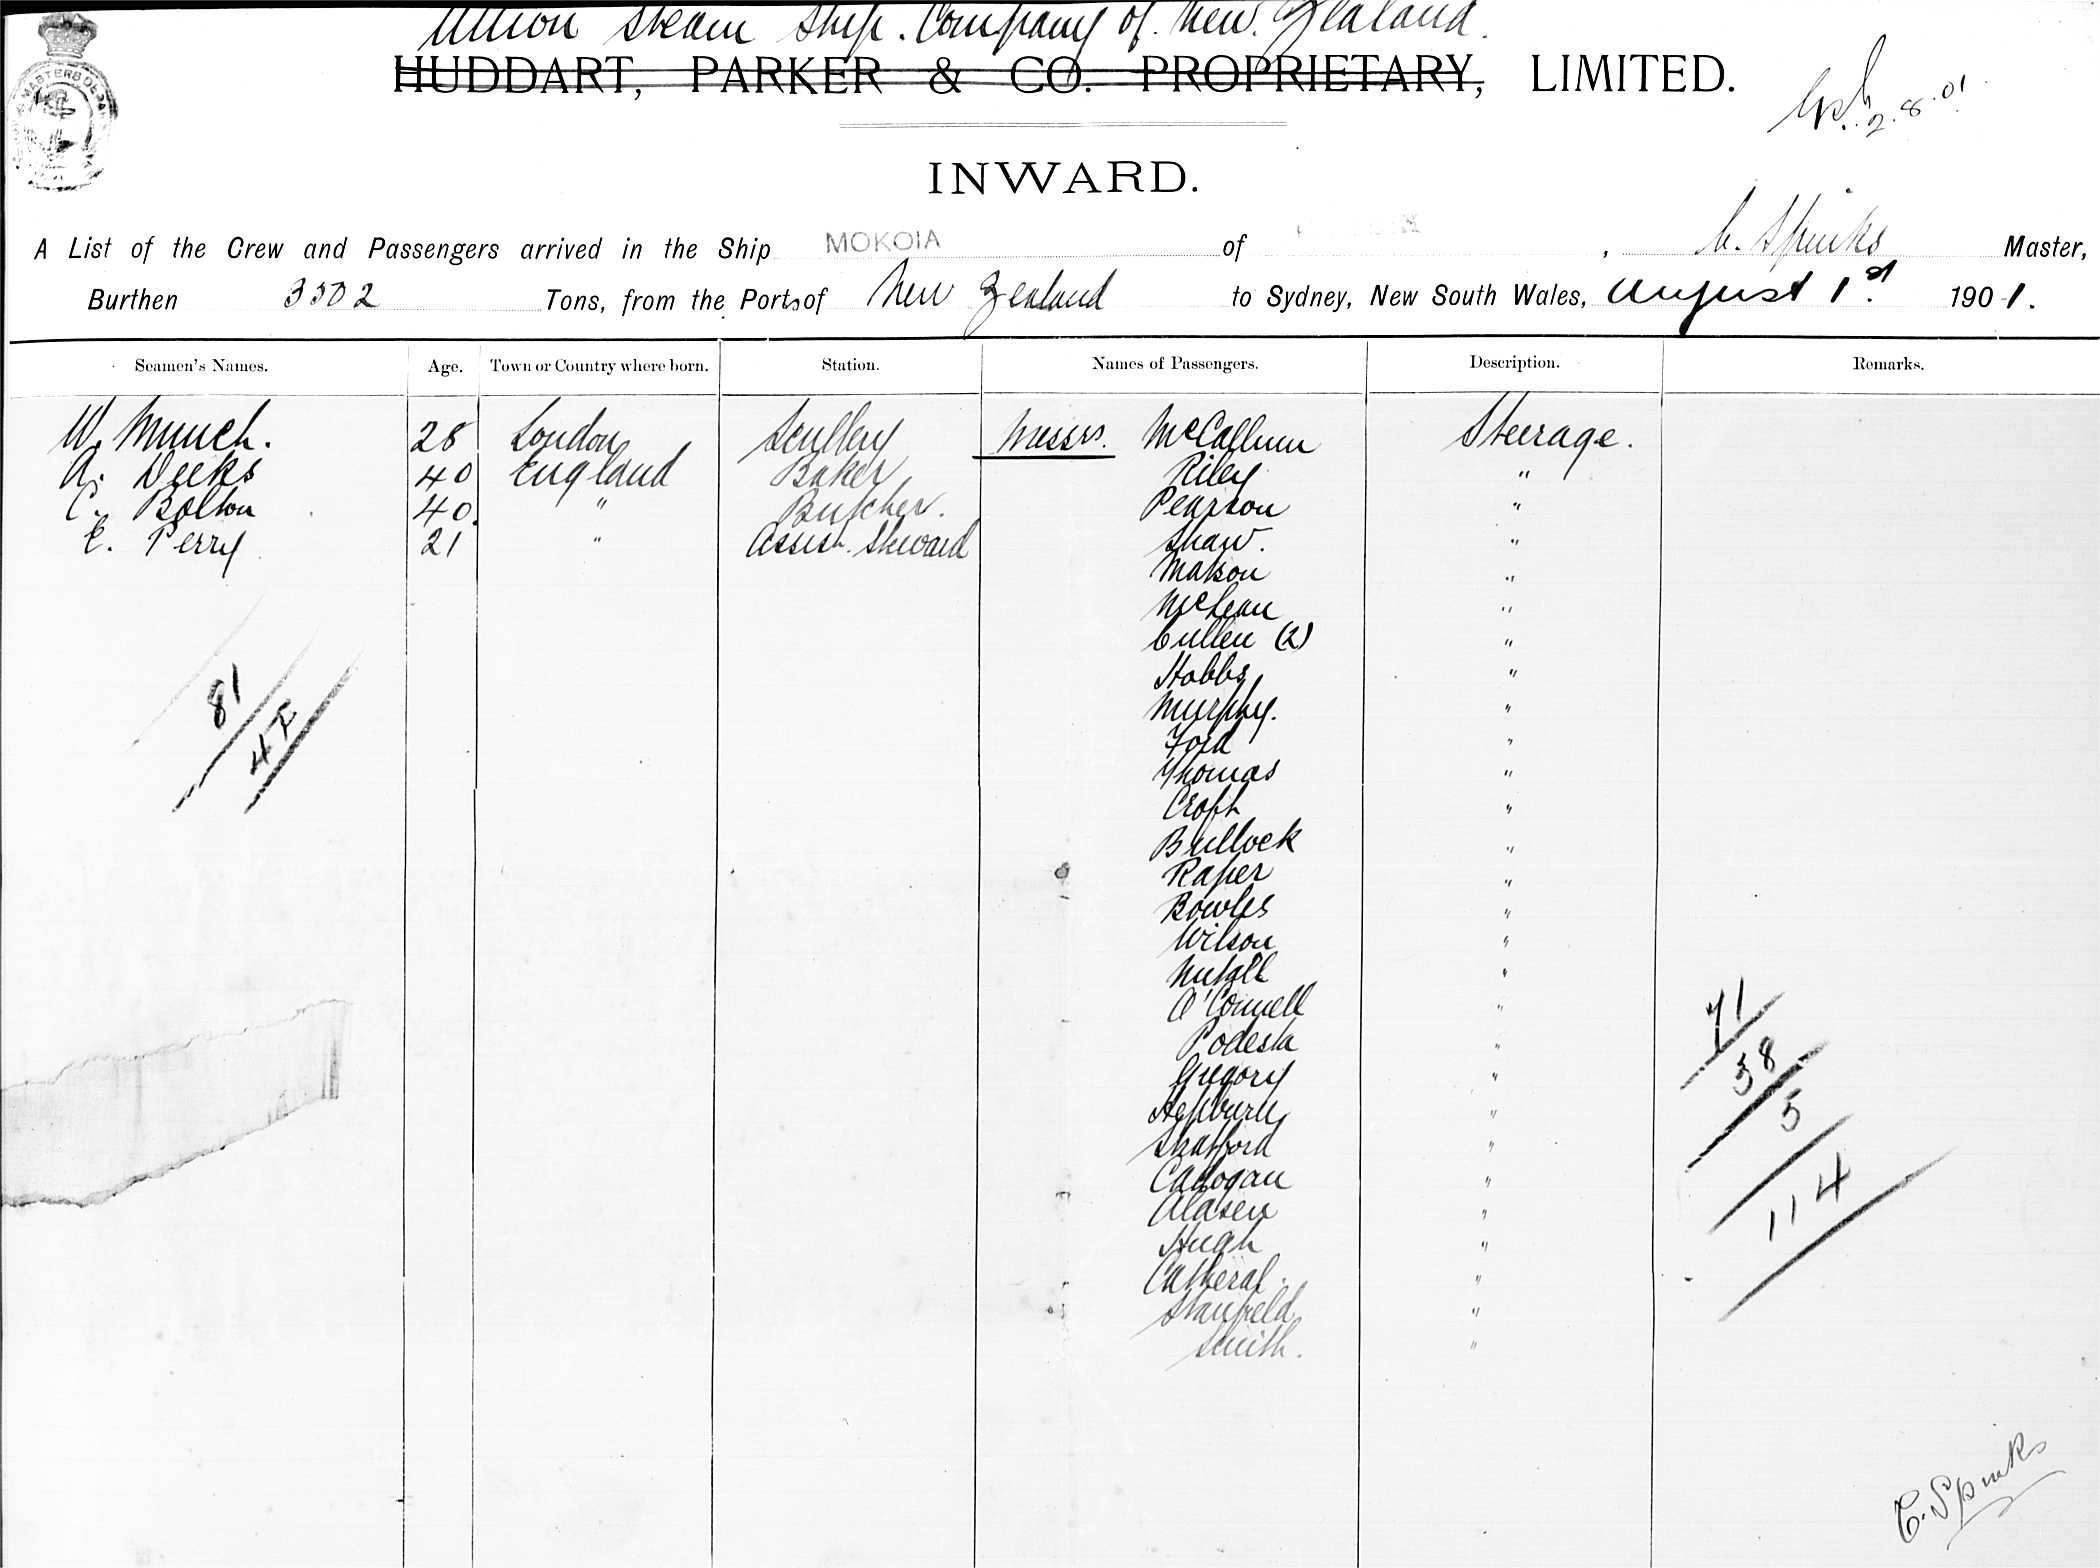 Union Steam Ship. Company of. New. Zealand.
HUDDART, PARKER & CO. PROPRIETARY, LIMITED.
2.8.01
INWARD.
A List of the Crew and Passengers arrived in the Ship MOKOIA of , C. Spinks Master,
Burthen 3502 Tons, from the Ports of New Zealand to Sydney, New South Wales, August 1st. 1901.
Seamen's Names. Age. Town or Country where born. Station. Names of Passengers. Description. Remarks.
W. Munch. 28 London Scullery Messrs. McCallum Steerage.
A. Deeks 40 England Baker Riley "
C. Bolton 40. " Butcher. Pearson "
E. Perry 21 " Assist. Steward Shaw. "
Matson "
McLean "
Cullen (2) "
Hobbs "
Murphy. "
Ford "
Thomas "
Croft "
Bullock "
Raper "
Bowles "
Wilson "
"
O'Connell "
Podesta "
Gregory "
Hepburn "
Stratford "
Cadogan "
Olasen "
Hugh "
Catheral. "
Stanfield "
Smith. "
81
42
71
38
5
114
C. Spinks